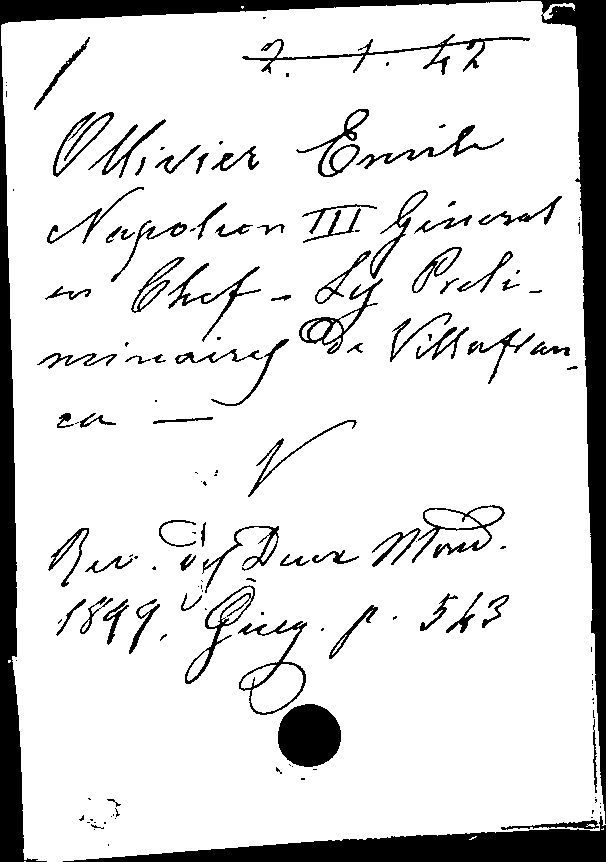 / 2. 1. 42
Ollivier Emile
Napoleon III Géneral
en Chef - Les Preli-
minaires de Villafran-
ca —
V
Rev. des Deux Mond.
1899. Giug. p. 543